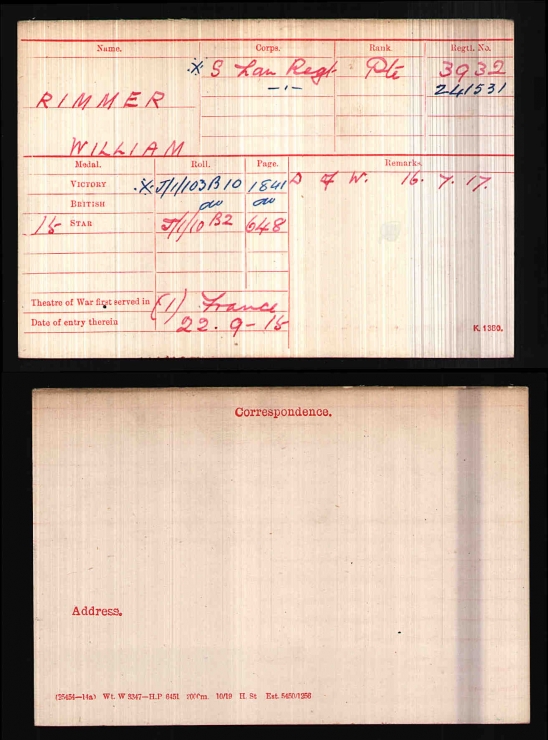 Name. Corps. Rank. Regtl. No.
X S Lan Regt Pte 3932
RIMMER —"— 241531
WILLIAM
Medal. Roll. Page. Remarks.
VICTORY X J/1/103B10 1841 D of W. 16. 7. 17.
BRITISH do do
15 STAR J/1/10 B2 648
Theatre of War first served in (1) France
Date of entry therein 22. 9-15
K. 1380.
Correspondence.
Address.
(25454—14a) Wt. W 3347—H.P 6451 10/19 H. St Est. 5450/1256